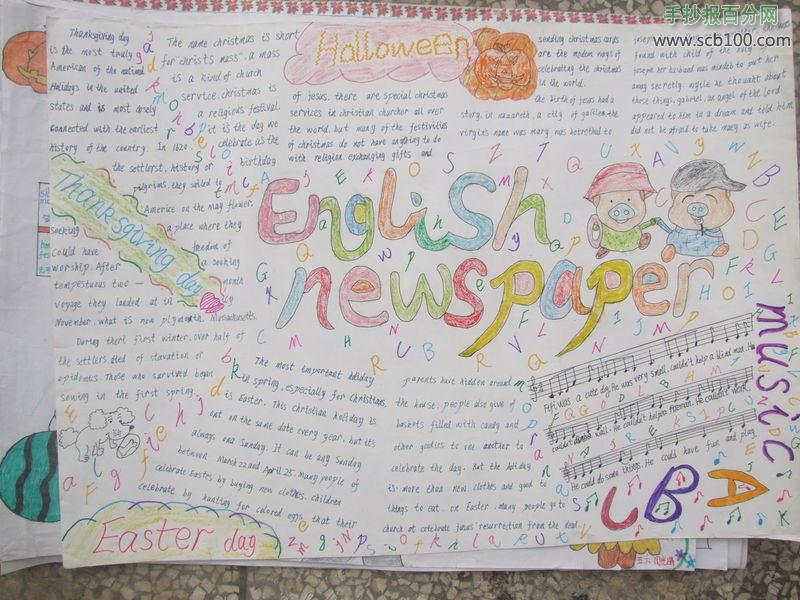 手抄报百分网
www.scb100.com
Thanksgiving day
is the most truly
American of the national
Holidays in the united
states and is most closely
connected with the earliest
history of the country. In 1620.
the settlerst, history of
pilgryms, they sailed to
America on the may flower.
seeking a place where they
Could have freedom of
worship. After a seeking
tempestuous two — month
voyage they landed at in icy
November, what is now plymouth, Massachusetts.
During therl first winter, over half of
the settlers died of starvation or
epidemics. Those who survived began
Sowing in the first spring.
Thanksgiving day
The name christmas is short
for "christs mass". a mass
is a kind of church
service. christmas is
a religious festival.
it is the day we
celebrate as the
birthday
Holloween
of jesus. there are special christmas
services in christian churcher all over
the world. but many of the festivities
of christmas do not have anything to do
with religion. exchanging gifts and
sending christmas cards
are the modern ways of
celebrating the christmas
in the world.
the birth of jesus had a
story. in nazareth, a city of galilee, the
virgin's name was mary was betrothed to
joseph
found with child of the holy
joseph her husband was minded to put her
away secretly. while he thought about
these things. gabriel, an angel of the lord
appeared to him in a dream and told him
did not be afraid to take mary as wife.
English
newspaper
The most important holiday
in spring, especially for Christians,
is Easter. This christian holiday is
not on the same date every year. but it's
always ona Sunday. It can be any Sunday
between March 22 and April 25. many people of
celebrate Easter by buying new clothes. children
celebrate by hunting for colored eggs that their
Easter day
parents have hidden around
the house. people also give of
baskets filled with candy and
other goodies to one another to
celebrate the day. But the holiday
is more than new clothes and good to
things to eat. on Easter. many people go to
church ot celebrate jesus' resurrection from the dead.
music
Fifi was a cute dg. He was very small. couldn't help a blind man. He
couldn't climb a wall. He couldn't help a fireman. He couldn't work
He could do some things. He could have fun and play.
C B A